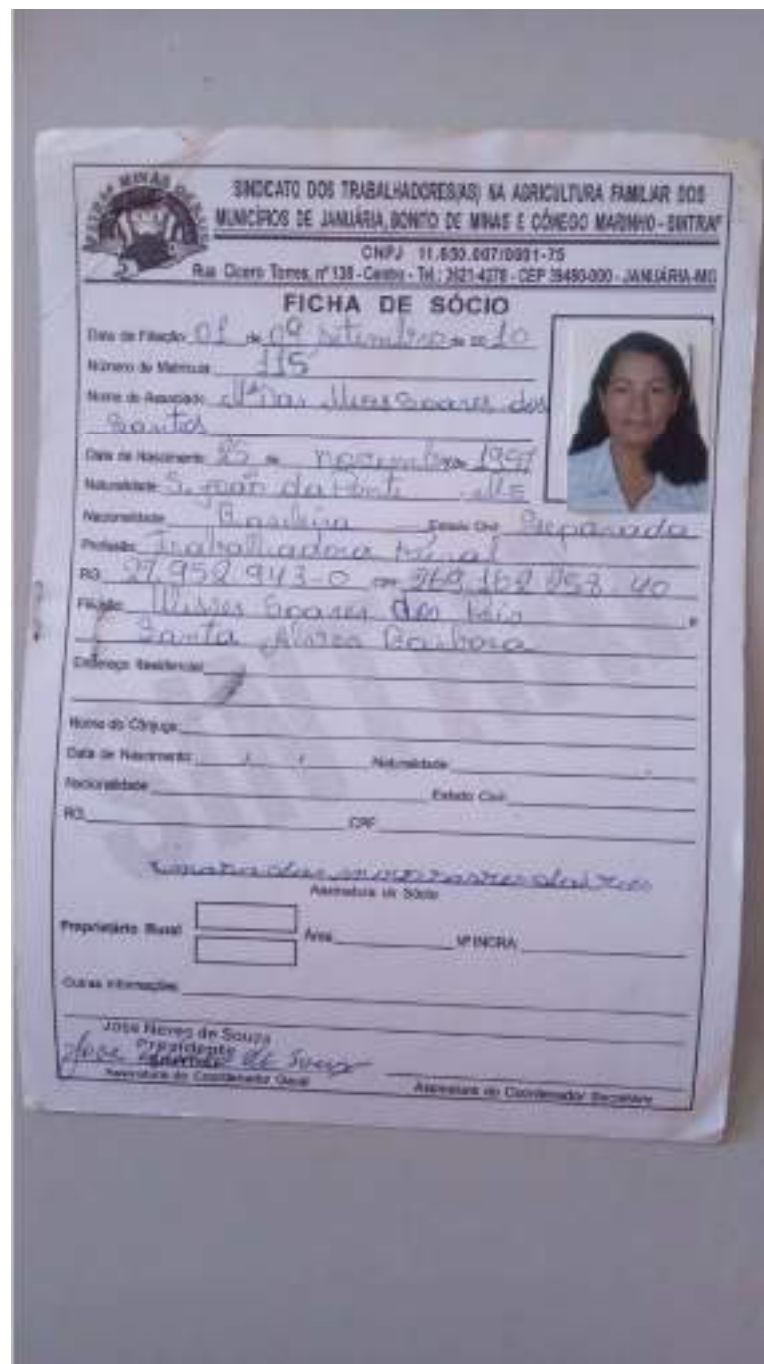 SINDICATO DOS TRABALHADORES(AS) NA AGRICULTURA FAMILIAR DOS
MUNICÍPIOS DE JANUÁRIA, BONITO DE MINAS E CÔNEGO MARINHO - SINTRAF
CNPJ 11.650.007/0001-75
Rua Cícero Torres, nº 138 - Centro - Tel.: 3621-4278 - CEP 39480-000 - JANUÁRIA-MG
FICHA DE SÓCIO
Data de Filiação 01 de 09 setembro de 20 10
Número de Matrícula 115
Nome do Associado Mª Das Soares dos
Santos
Data de Nascimento 25 de novembro de
Naturalidade S. João da Ponte
Nacionalidade Brasileira Estado Civil Separada
Profissão Trabalhadora Rural
RG 27.952.943-0 CPF
Filiação Ulisses Soares dos Reis e
Santa Barbosa
Endereço Residencial
Nome do Cônjuge
Data de Nascimento / / Naturalidade
Nacionalidade Estado Civil
RG CPF
Assinatura do Sócio
Proprietário Rural Área Nº INCRA
Outras informações
José Neves de Souza
Presidente
José de Souza
Assinatura do Coordenador Geral Assinatura do Coordenador Secretário